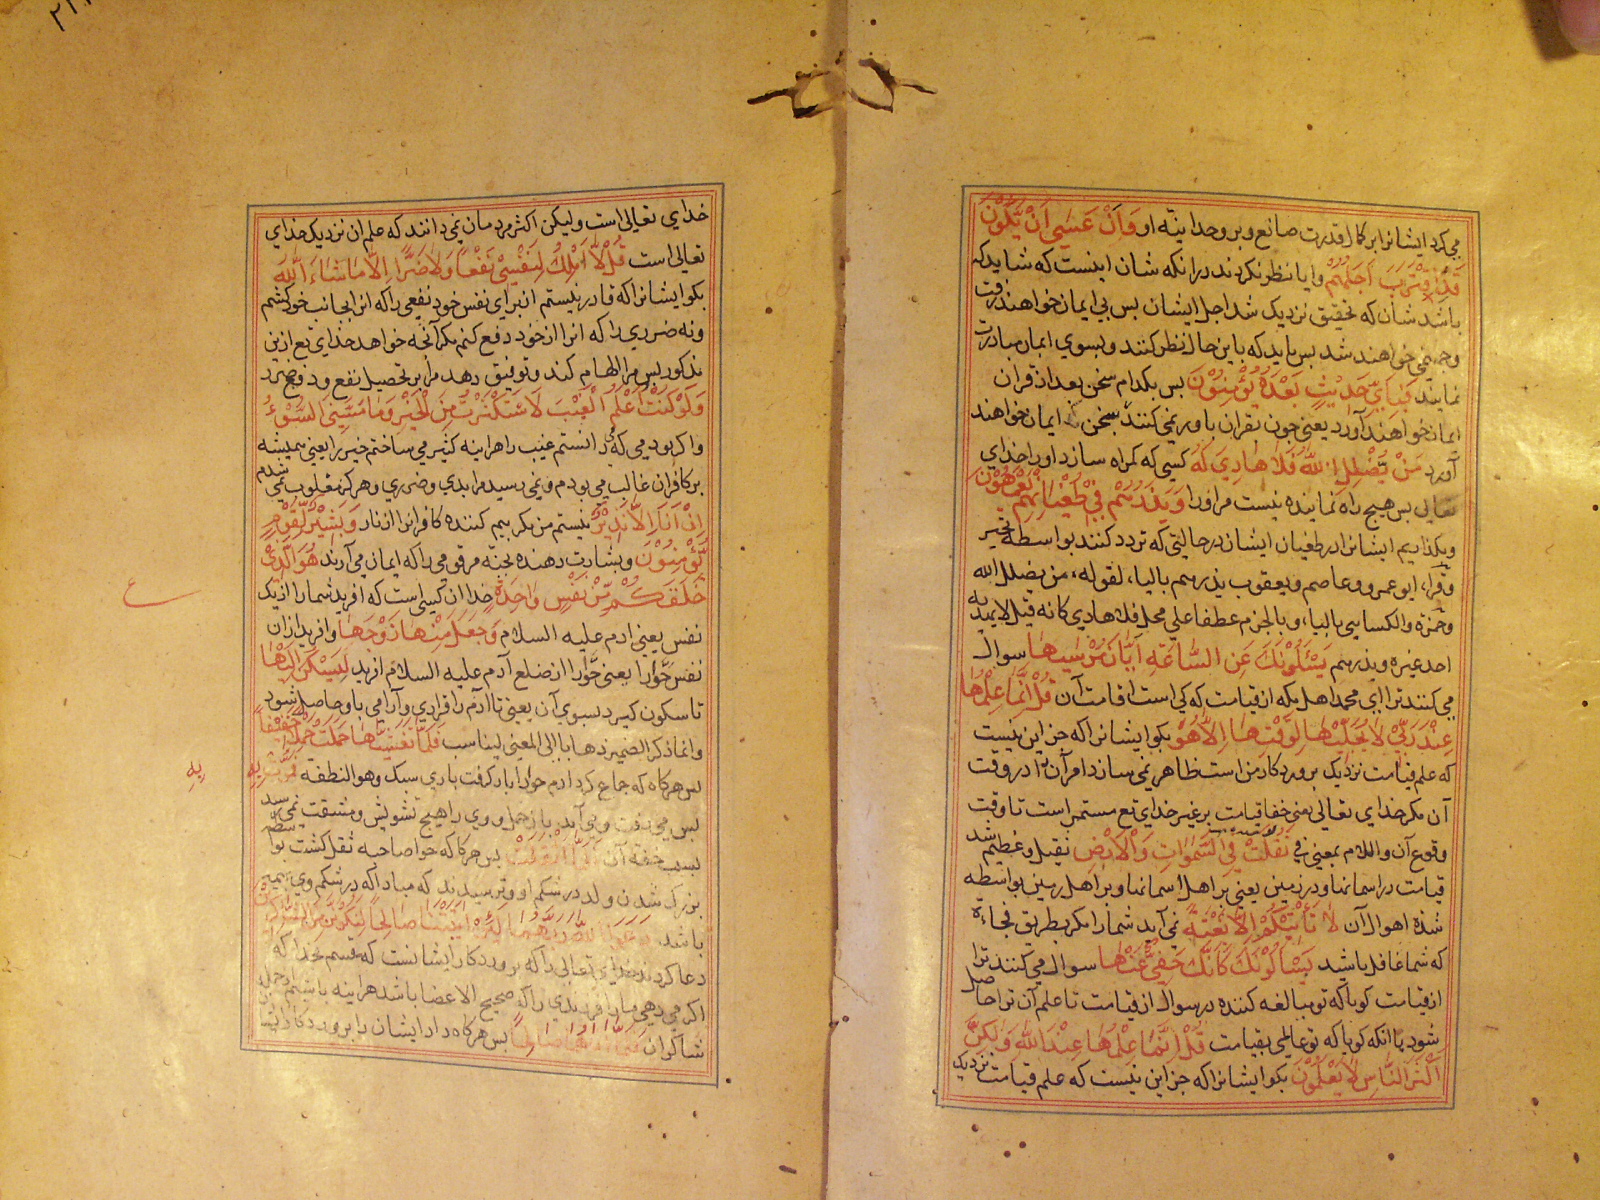 می کرد ایشانرا بر کمال قدرت صانع و بر وحدانیة او وَاَنْ عَسٰی اَنْ یَّکُوْنَ
قَدِ اقْتَرَبَ اَجَلُهُمْ وایا نظر نکردند درانکه شان اینست که شاید که
باشد شان که تحقیق نزدیک شد اجل ایشان بس بی ایمان خواهند رفت
و جهنمی خواهند شد بس باید که باین حال نظر کنند و بسوی ایمان مبادرت
نمایند فَبِاَیِّ حَدِیْثٍ بَعْدَهٗ یُؤْمِنُوْنَ بس بکدام سخن بعد از قران
ایمان خواهند آورد یعنی جون بقران باور نمی کنند بسخن ایمان خواهند
آورد مَنْ یُّضْلِلِ اللّٰهُ فَلَا هَادِیَ لَهٗ کسی که کمراه سازد اورا خدای
تعالی بس هیچ راه نماینده نیست مراورا وَیَذَرُهُمْ فِیْ طُغْیَانِهِمْ یَعْمَهُوْنَ
و بکذاریم ایشانرا در طغیان ایشان در حالیتی که تردد کنند بواسطه تحیر
و قراء ابو عمرو و عاصم و یعقوب یذرهم بالیاء لقوله من یضلل الله
و حمزه والکسایی بالیاء و بالجزم عطفا علی محل فلا هادی کانه قیل لایهدیه
احد غیره و یذرهم یَسْئَلُوْنَكَ عَنِ السَّاعَةِ اَیَّانَ مُرْسٰیهَا سوال
می کنند ترا ای محمد اهل مکه از قیامت که کی است اقامت آن قُلْ اِنَّمَا عِلْمُهَا
عِنْدَ رَبِّیْ لَا یُجَلِّیْهَا لِوَقْتِهَا اِلَّا هُوَ بکو ایشانرا که جز این نیست
که علم قیامت نزدیک برورد کار من است ظاهر نمی سازد امر آن را در وقت
آن مکر خدای تعالی یعنی خفا قیامت بر غیر خدای تع مستمر است تا وقت
وقوع آن واللام بمعنی فی ثَقُلَتْ فِی السَّمٰوَاتِ وَالْاَرْضِ ثقیل و عظیم شد
قیامت در اسمانها و در زمین یعنی بر اهل اسمانها و بر اهل زمین بواسطه
شدة اهوال آن لَا تَأْتِیْكُمْ اِلَّا بَغْتَةً نمی آید شمارا مکر بطریق فجاءة
که شما غافل باشید یَسْأَلُوْنَكَ كَاَنَّكَ حَفِیٌّ عَنْهَا سوال می کنند ترا
از قیامت کویا که تو مبالغه کننده در سوال از قیامت تا علم آن ترا حاصل
شود یا انکه کویا که تو عالمی بقیامت قُلْ اِنَّمَا عِلْمُهَا عِنْدَ اللّٰهِ وَلٰكِنَّ
اَكْثَرَ النَّاسِ لَا یَعْلَمُوْنَ بکو ایشانرا که جز این نیست که علم قیامت نزدیک
خدای تعالی است ولیکن اکثر مردمان نمی دانند که علم ان نزدیک خدای
تعالی است قُلْ لَا اَمْلِكُ لِنَفْسِیْ نَفْعًا وَلَا ضَرًّا اِلَّا مَا شَاءَ اللّٰهُ
بکو ایشانرا که قادر نیستم از برای نفس خود نفعی را که انرا بجانب خود کشم
و نه ضرری را که انرا از خود دفع کنم مکر آنچه خواهد خدای تع از ین
مذکور بس مرا الهام کند و توفیق دهد مرا بر تحصیل نفع و دفع ضرر
وَلَوْ كُنْتُ اَعْلَمُ الْغَیْبَ لَاسْتَكْثَرْتُ مِنَ الْخَیْرِ وَمَا مَسَّنِیَ السُّوْءُ
واکر بودمی که می دانستم غیب را هراینه کثیر می ساختم خیر را یعنی همیشه
بر کافران غالب می بودم و نمی رسید مرا بدی و ضرری و هرکز مغلوب نمی شدم
اِنْ اَنَا اِلَّا نَذِیْرٌ نیستم من مکر بیم کننده کافرانرا از نار وَبَشِیْرٌ لِّقَوْمٍ
یُّؤْمِنُوْنَ و بشارت دهنده بجنه مرقومی را که ایمان می آرند هُوَ الَّذِیْ
خَلَقَكُمْ مِّنْ نَفْسٍ وَاحِدَةٍ خدا ان کسی است که افرید شمارا از یک
نفس یعنی ادم علیه السلام وَجَعَلَ مِنْهَا زَوْجَهَا و افرید ازان
نفس حوارا یعنی حوارا از ضلع آدم علیه السلام افرید لِیَسْكُنَ اِلَیْهَا
تا سکون کیرد بسوی آن یعنی تا آدم را قراری و آرامی باو حاصل شود
وانما ذکر الضمیر ذهابا الی المعنی لیناسب فَلَمَّا تَغَشّٰیهَا حَمَلَتْ حَمْلًا خَفِیْفًا
بس هرکاه که جماع کرد ادم حوارا بار کرفت باری سبک وهو النطفه فَمَرَّتْ بِهٖ
بس می رفت و می آید با حمل و وی را هیچ تشویش و مشقت نمی رسید
بسبب خفة آن فَلَمَّا اَثْقَلَتْ بس هرکاه که حوا صاحبه ثقل کشت بواسطه
بزرک شدن ولد در شکم او و ترسیدند که مبادا که در شکم وی بهیمه
باشد دَعَوَا اللّٰهَ رَبَّهُمَا لَئِنْ اٰتَیْتَنَا صَالِحًا لَّنَكُوْنَنَّ مِنَ الشَّاكِرِیْنَ
دعا کردند خدای تعالی را که برورد کار ایشانست که قسم بخدا که
اکر می دهی مارا فرزندی را که صحیح الاعضا باشد هراینه باشیم از جمله
شاکران فَلَمَّا اٰتٰیهُمَا صَالِحًا بس هرکاه داد ایشان را برورد کار ایشان
ع
به